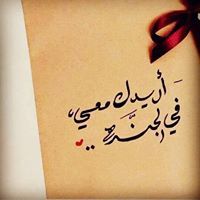 أريدك معي،
في الجنة ..